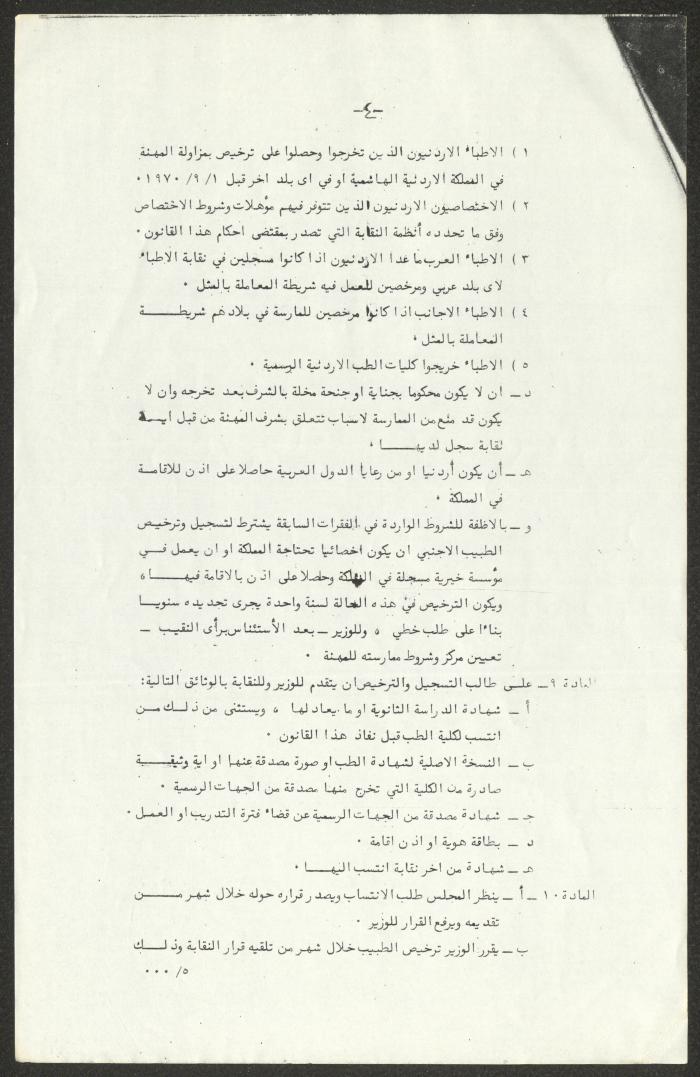 -٤-
١ ) الاطباء الاردنيون الذين تخرجوا وحصلوا على ترخيص بمزاولة المهنة
في المملكة الاردنية الهاشمية او في اى بلد اخر قبل ١/ ٩/ ١٩٧٠ ٠
٢ ) الاختصاصيون الاردنيون الذين تتوفر فيهم مؤهلات وشروط الاختصاص
وفق ما تحدده أنظمة النقابة التي تصدر بمقتضى احكام هذا القانون ٠
٣ ) الاطباء العرب ما عدا الاردنيون اذا كانوا مسجلين في نقابة الاطباء
لاى بلد عربي ومرخصين للعمل فيه شريطة المعاملة بالمثل ٠
٤ ) الاطباء الاجانب اذا كانوا مرخصين للمارسة في بلادهم شريطـــــة
المعاملة بالمثل ٠
٥ ) الاطباء خريجوا كليات الطب الاردنية الرسمية ٠
د ـ ان لا يكون محكوما بجناية او جنحة مخلة بالشرف بعد تخرجه وان لا
يكون قد منع من الممارسة لاسباب تتعلق بشرف المهنة من قبل ايـــة
نقابة سجل لديهـــــا ٠
هـ ـ أن يكون أردنيا او من رعايا الدول العربية حاصلا على اذن للاقامـة
في المملكة ٠
و ـ بالاظفة للشروط الواردة في الفقرات السابقة يشترط لتسجيل وترخيص
الطبيب الاجنبي ان يكون اخصائيا تحتاجة المملكة او ان يعمل فـــي
مؤسسة خيرية مسجلة في المملكة وحصلا على اذن بالاقامة فيهـــــا ،
ويكون الترخيص في هذه الحالة لسنة واحدة يجرى تجديده سنويـــا
بناءا على طلب خطي ، وللوزير ـ بعد الأستئناس برأى النقيب ـ
تعيين مركز وشروط ممارسته للمهنة ٠
المادة ٩ ـ علـى طالب التسجيل والترخيص ان يتقدم للوزير وللنقابة بالوثائق التالية:
أ ـ شهادة الدراسة الثانوية او ما يعادلها ، ويستثنى من ذلـك مـــن
انتسب لكلية الطب قبل نفاذ هذا القانون ٠
ب ـ النسخة الاصلية لشهادة الطب او صورة مصدقة عنها او اية وثيقـــة
صادرة من الكلية التي تخرج منها مصدقة من الجهات الرسمية ٠
جـ ـ شهادة مصدقة من الجهات الرسمية عن قضاء فترة التدريب او العمل ٠
د ـ بطاقة هوية او اذن اقامة ٠
هـ ـ شهادة من اخر نقابة انتسب اليهـــا ٠
المادة ١٠ـ أ ـ ينظر المجلس طلب الانتساب ويصدر قراره حوله خلال شهر مـــــن
تقديمه ويرفع القرار للوزير ٠
ب ـ يقرر الوزير ترخيص الطبيب خلال شهر من تلقيه قرار النقابة وذلـــك
٥/ ٠٠٠